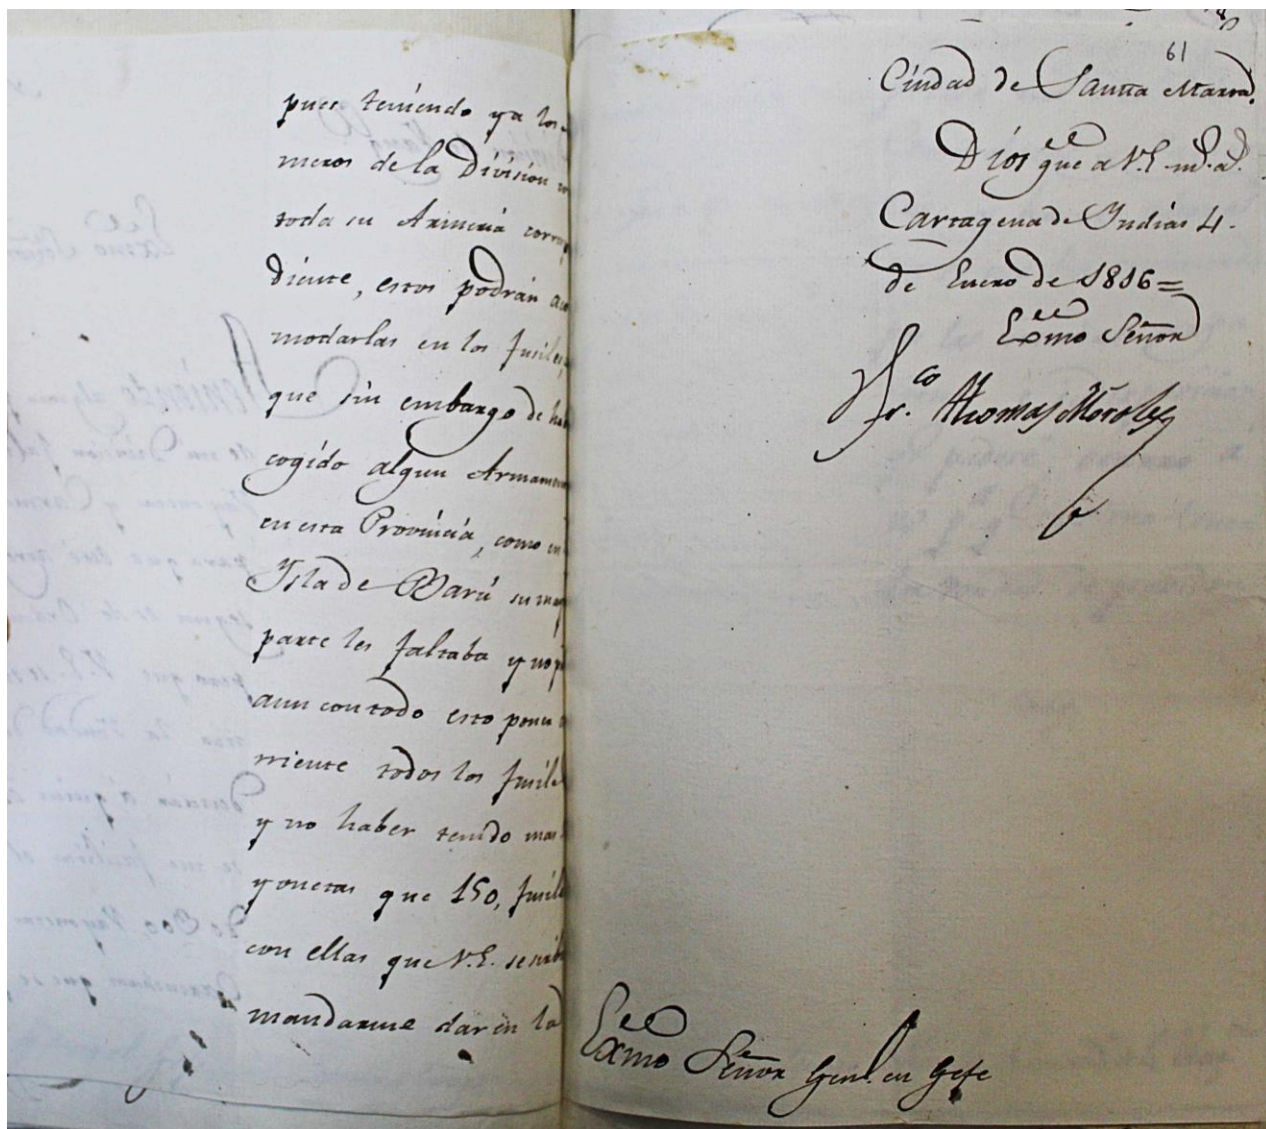 pues teniendo ya los
meros de la Division
toda su Armeria corresp
diente, estos podrán aco
modarlas en los fusiles,
que sin embargo de hab
cogido algun Armamen
en esta Provincia, como en
Ysla de Barú su may
parte les faltaba y no p
aun con todo esto poner
rriente todos los fusile
y no haber tenido mas
yonetas que 150, fusile
con ellas que V.E. se sirbi
mandarme dar en la
61
Ciudad de Santa Marta.
Dios gue a V.E. ms. as.
Cartagena de Indias 4.
de Enero de 1816=
Exmo Señor
Fr.co Thomas Morales
Exmo Señor Genl. en Gefe